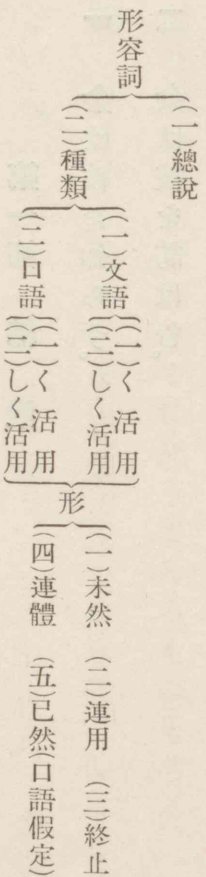 形容詞
(一)總說
(二)種類
(一)文語
(一)く活用
(二)しく活用
(二)口語
(一)く活用
(二)しく活用
形
(一)未然 (二)連用 (三)終止
(四)連體 (五)已然(口語假定)